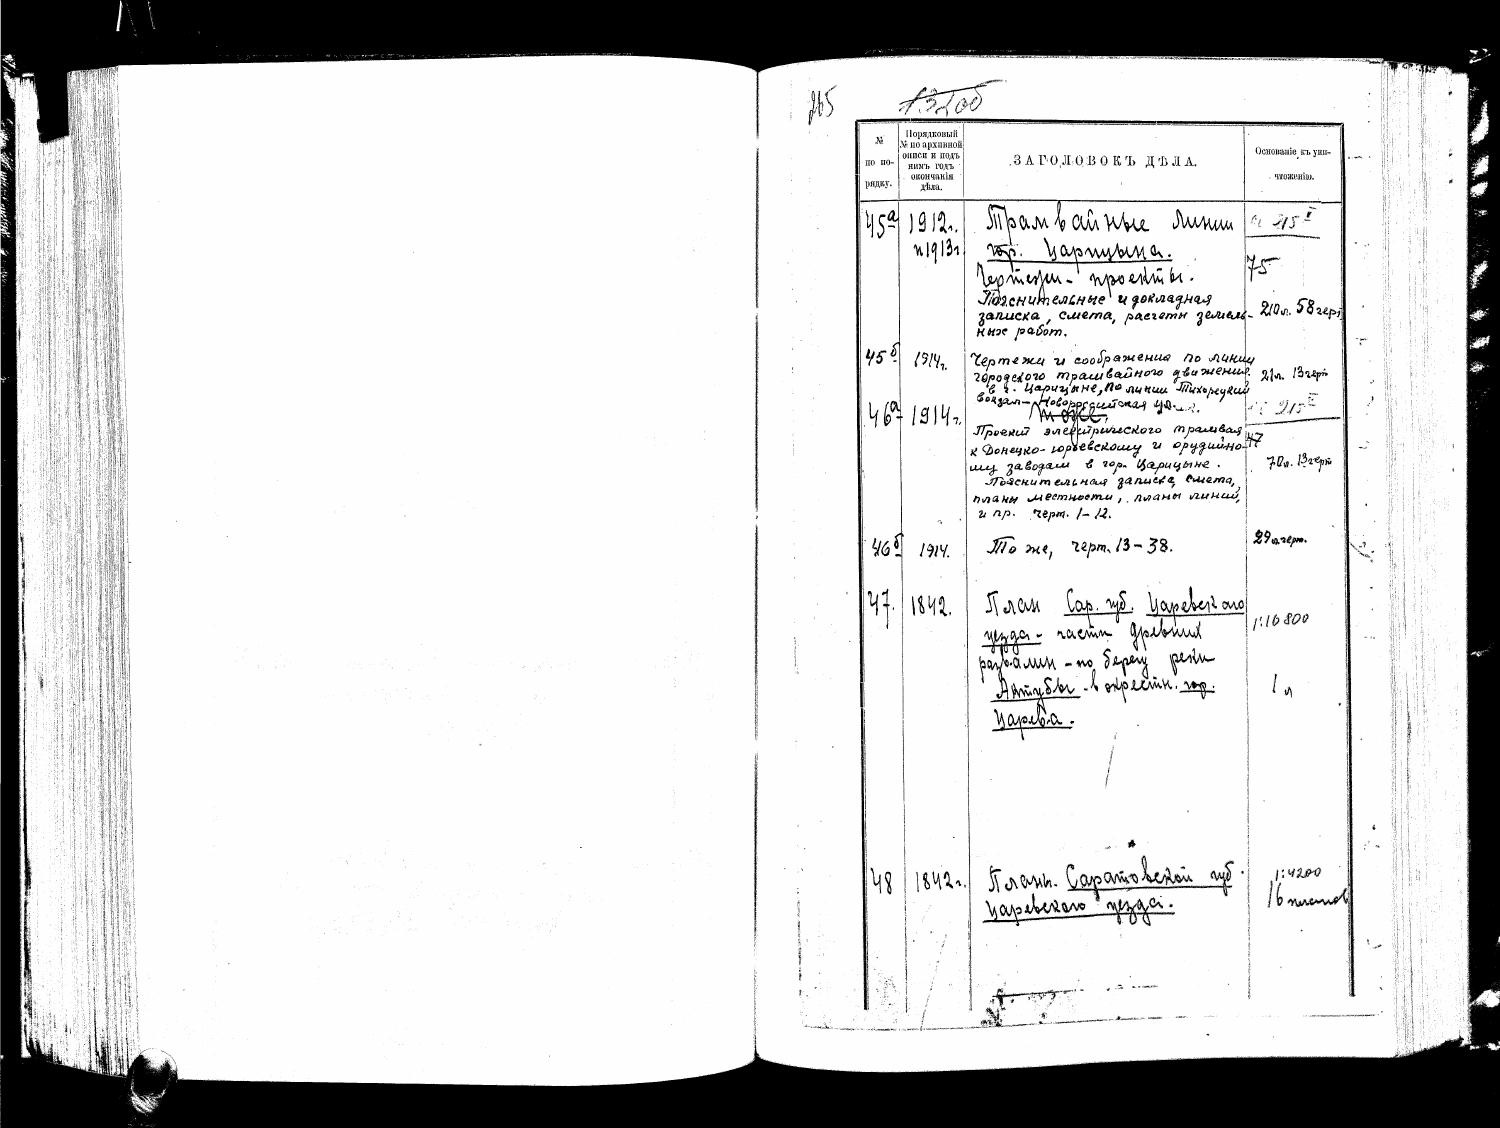 265
13200
№
по по-
рядку.
Порядковый
№ по архивной
описи и подъ
нимъ годъ
окончанія
дѣла.
ЗАГОЛОВОКЪ ДѢЛА.
Основаніе къ уни-
чтоженію.
45а 1912г. Трамвайные линии 215 I
и 1913г. гор. Царицына. 75
Чертежи - проекты.
Пояснительные и докладная
записка, смета, расчеты земель- 210л. 58 черт
ных работ.
45б 1914г. Чертежи и соображения по линии
городского трамвайного движения 21л. 13 черт
в г. Царицыне, по линии Тихорецкий
вокзал - Новороссийская ул.
46а 1914г. То же. 215 II
Проект электрического трамвая 47
к Донецко-Юрьевскому и орудийно-
му заводам в гор. Царицыне. 70л. 13 черт
Пояснительная записка, смета,
планы местности, планы линий,
и пр. черт. 1-12.
46б 1914. То же, черт. 13-38. 29 л. черт.
47. 1842. План Сар. губ. Царевского 1:16800
уезда - части древних
развалин - по берегу реки
Ахтубы - в окрестн. гор. 1 л
Царева.
48 1842г. Планы Саратовской губ. 1:4200
Царевского уезда. 16 планов